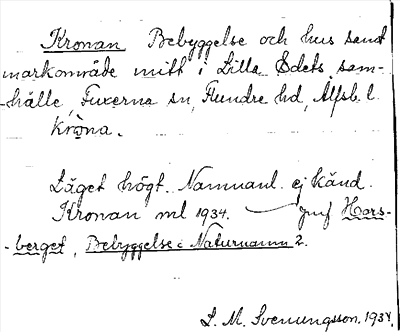 Kronan Bebyggelse och hus samt
markområde mitt i Lilla Edets sam-
-hälle, Fuxerna sn, Flundre hd, Älfsb. l.
krona.
Läget högt. Namnanl. ej känd.
Kronan ml 1934. — jmf Hors-
-berget, Bebyggelse: Naturnamn 2.
L. M. Svenungsson. 1934.